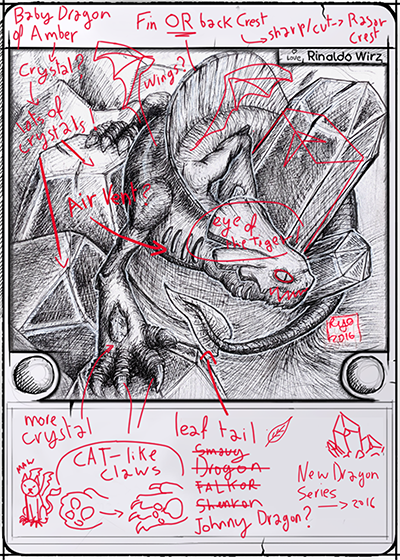 Baby Dragon
of Amber
Fin OR back Crest
↳ sharp/cut → Rasor
Crest
I LOVE Rinaldo Wirz
Crystal?
Wings?!
Lots of
crystals!
Air Vent?
eye of
the Tiger!
Ryo
2016
more
crystal
leaf tail
MAW
CAT-like
claws
Smaug
Drogon
FALKOR
Shenron
Johnny Dragon?
New Dragon
Series
→ 2016